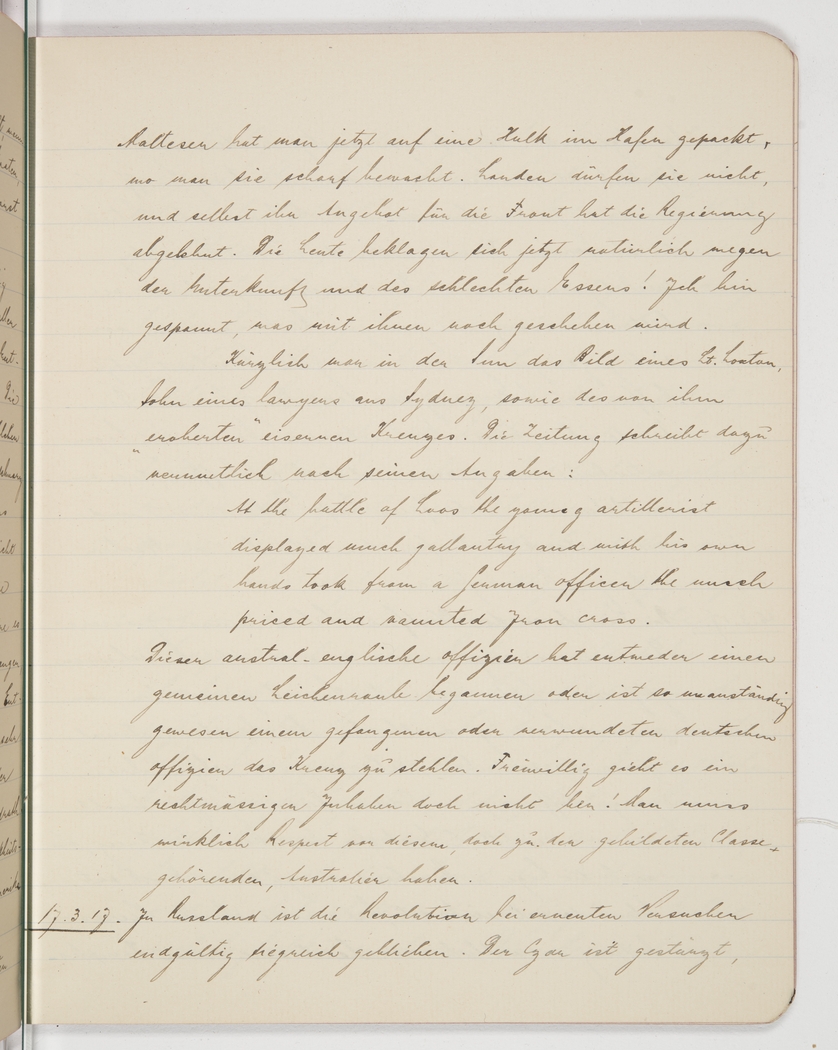 Malteser hat man jetzt auf eine Hulk im Hafen gepackt,
wo man sie scharf bewacht. Landen dürfen sie nicht,
und selbst ihr Angebot für die Front hat die Regierung
abgelehnt. Die Leute beklagen sich jetzt natürlich wegen
der Unterkunft und des schlechten Essens! Ich bin
gespannt, was mit ihnen noch geschehen wird.
Kürzlich war in der Sun das Bild eines Lt. Loxton,
Sohn eines lawyers aus Sydney, sowie des von ihm
"eroberten" eisernen Kreuzes. Die Zeitung schreibt dazu
vermutlich nach seinen Angaben:
At the battle of Loos the young artillerist
displayed much gallantry and with his own
hands took from a German officer the much
priced and vaunted Iron cross.
Dieser austral-englische Offizier hat entweder einen
gemeinen Leichenraub begannen oder ist so unanständig
gewesen einem gefangenen oder verwundeten deutschen
Offizier das Kreuz zu stehlen. Freiwillig giebt es ein
rechtmässiger Inhaber doch nicht her! Man muss
wirklich Respect vor diesem, doch zu der gebildeten Classe
gehörenden, Australier haben.
17.3.17. In Russland ist die Revolution bei erneuten Versuchen
endgültig siegreich geblieben. Der Czar ist gestürzt,